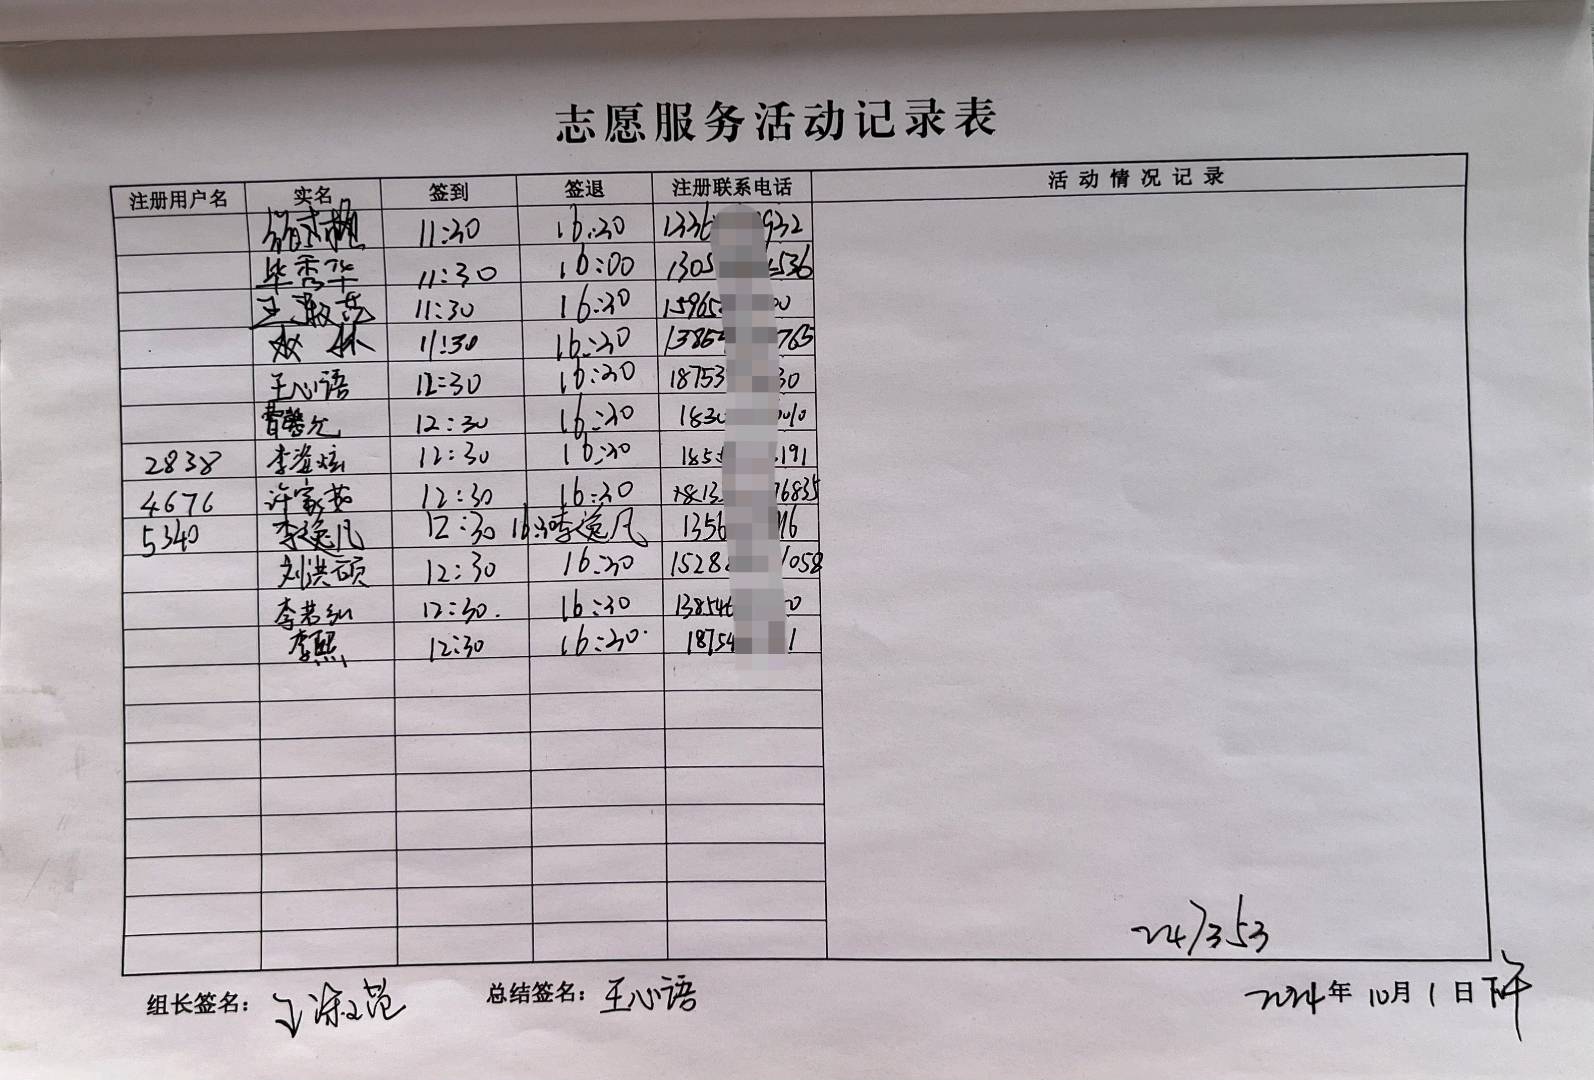 志愿服务活动记录表
注册用户名 实名 签到 签退 注册联系电话 活动情况记录
11:30 16:30 1336 932
毕秀华 11:30 16:00 1305 536
王淑范 11:30 16:30 15965 00
林 11:30 16:30 1385 765
王心语 12:30 16:30 18753 30
曹馨允 12:30 16:30 1830 010
2838 李澄炫 12:30 16:30 185 191
4676 许家茹 12:30 16:30 1813 76835
5340 李逸凡 12:30 16:30 李逸凡 1356 76
刘洪硕 12:30 16:30 1528 1058
李若弘 12:30. 16:30 13854 0
李熙 12:30 16:30. 18754 1
247353
组长签名: 王淑范 总结签名: 王心语 2024年10月1日下午